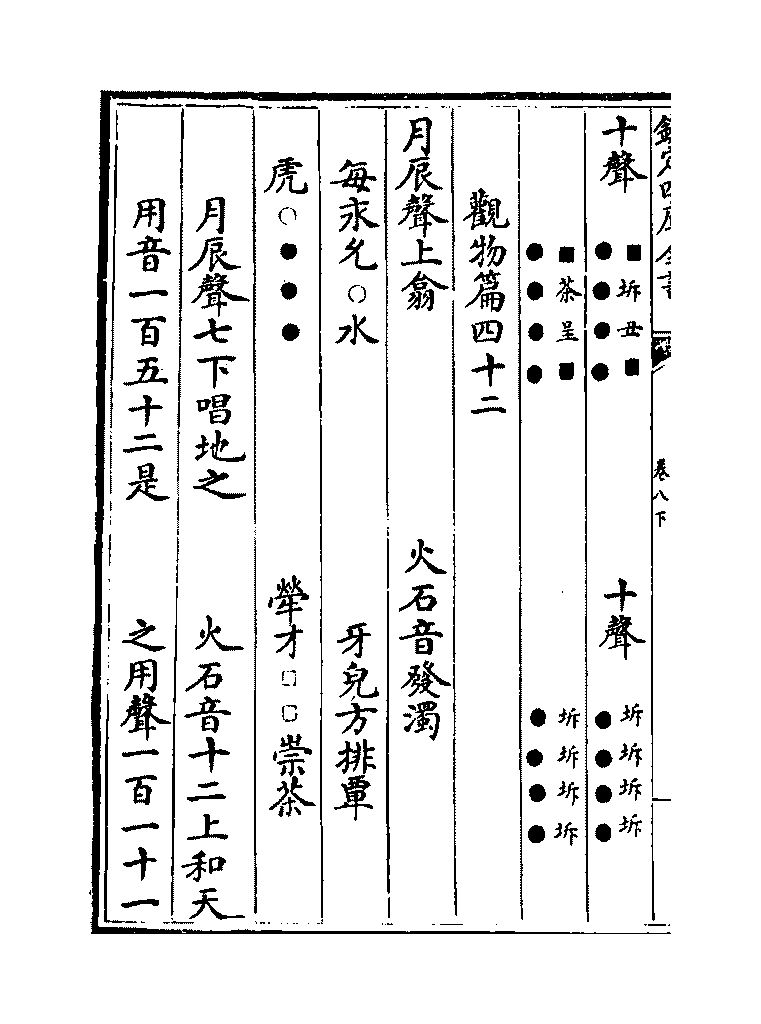 欽定四庫全書 卷八下
十聲 ■坼丑■ ●●●● 十聲 坼坼坼坼 ●●●●
■茶呈■ ●●●● 坼坼坼坼 ●●●●
觀物篇四十二
月辰聲上翕 火石音發濁
每永允○水 牙皃方排覃
虎○●●● 犖才□□崇茶
月辰聲七下唱地之 火石音十二上和天
用音一百五十二是 之用聲一百一十一